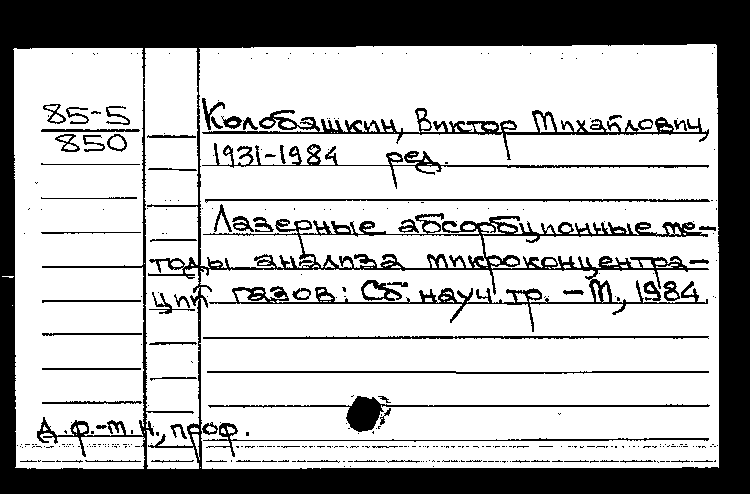 85-5
850
Колобашкин, Виктор Михайлович,
1931-1984 ред.
Лазерные абсорбционные ме-
тоды анализа микроконцентра-
ций газов: Сб. науч. тр. - М., 1984.
Д.ф.-м.н., проф.